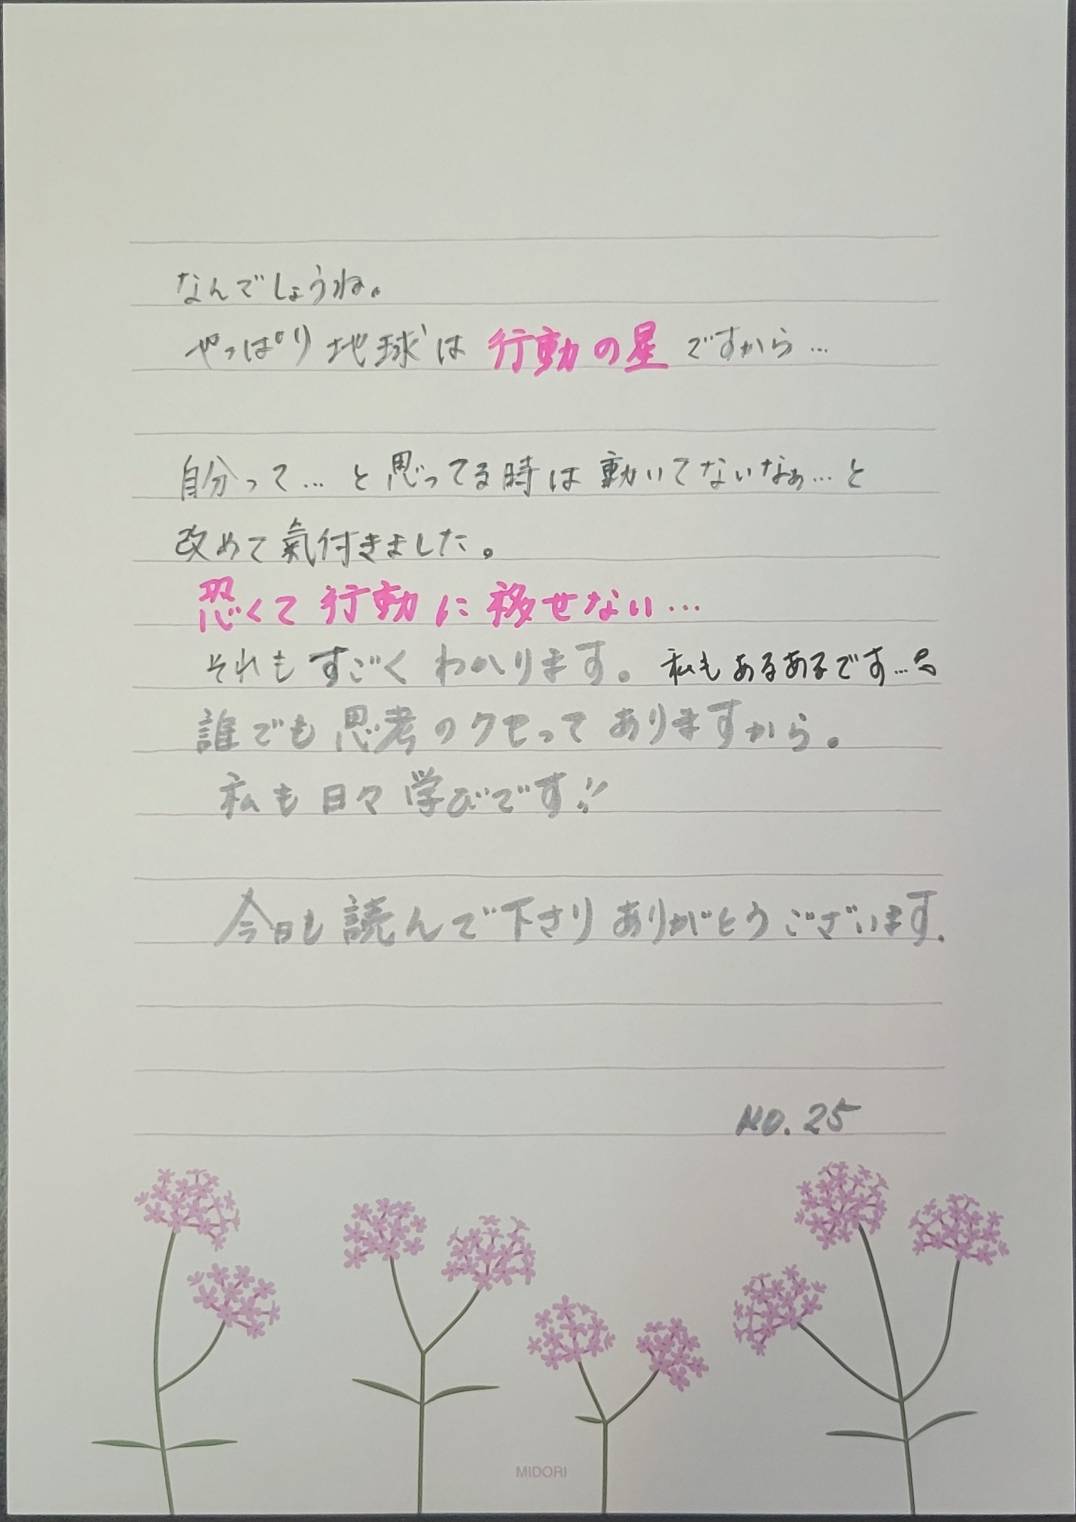 なんでしょうね。
やっぱり地球は行動の星ですから…
自分って…と思ってる時は動いてないなぁ…と
改めて氣付きました。
恐くて行動に移せない…
それもすごくわかります。私もあるあるです…
誰でも思考のクセってありますから。
私も日々学びです!!
今日も読んで下さりありがとうございます.
NO.25
MIDORI